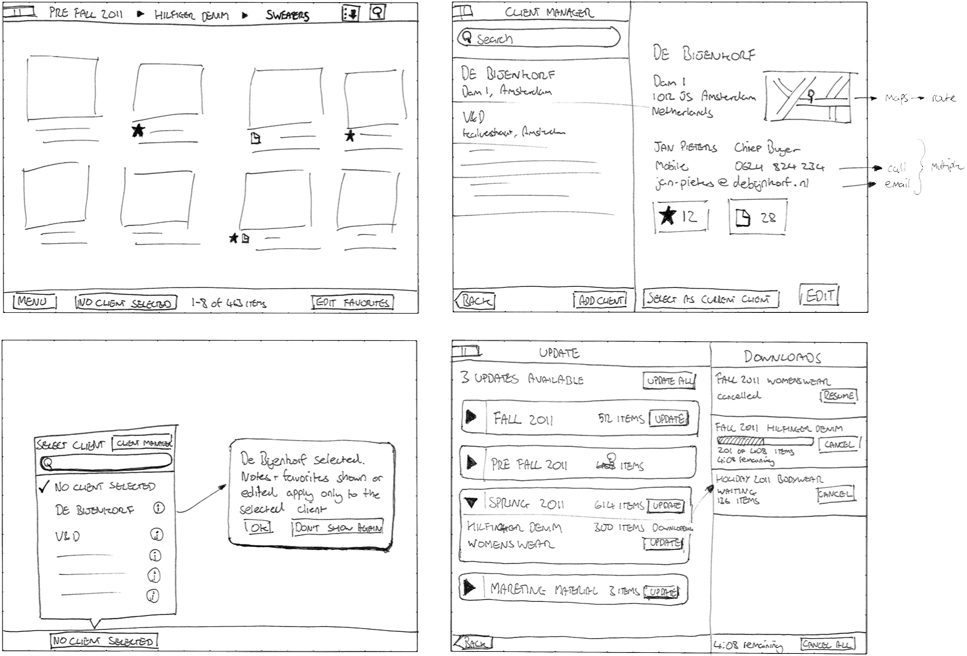 PRE FALL 2011 ▶ HILFIGER DENIM ▶ SWEATERS
MENU
NO CLIENT SELECTED
1-8 of 463 ITEMS
EDIT FAVORITES
CLIENT MANAGER
Search
DE BIJENKORF
Dam 1, Amsterdam
V&D
Amsterdam
BACK
ADD CLIENT
DE BIJENKORF
Dam 1
1012 JS Amsterdam
Netherlands
maps → route
JAN PIETERS Chief Buyer
Mobile 0624 824 234
jan-pieters@debijenkorf.nl
call
email
Multiple
12
28
SELECT AS CURRENT CLIENT
EDIT
SELECT CLIENT
CLIENT MANAGER
NO CLIENT SELECTED
DE BIJENKORF
V&D
NO CLIENT SELECTED
De Bijenkorf selected.
Notes + favorites shown or
edited apply only to the
selected client
OK
DON'T SHOW AGAIN
UPDATE
3 UPDATES AVAILABLE
UPDATE ALL
FALL 2011 512 ITEMS UPDATE
PRE FALL 2011 ITEMS
SPRING 2011 614 ITEMS UPDATE
HILFINGER DENIM 300 ITEMS
WOMENSWEAR UPDATE
MARETING MATERIAL 3 ITEMS UPDATE
BACK
DOWNLOADS
FALL 2011 WOMENSWEAR
cancelled
RESUME
FALL 2011 HILFINGER DENIM
CANCEL
201 OF 408 ITEMS
4:08 remaining
HOLIDAY 2011 BODYWEAR
WAITING
126 ITEMS
CANCEL
4:08 remaining
CANCEL ALL